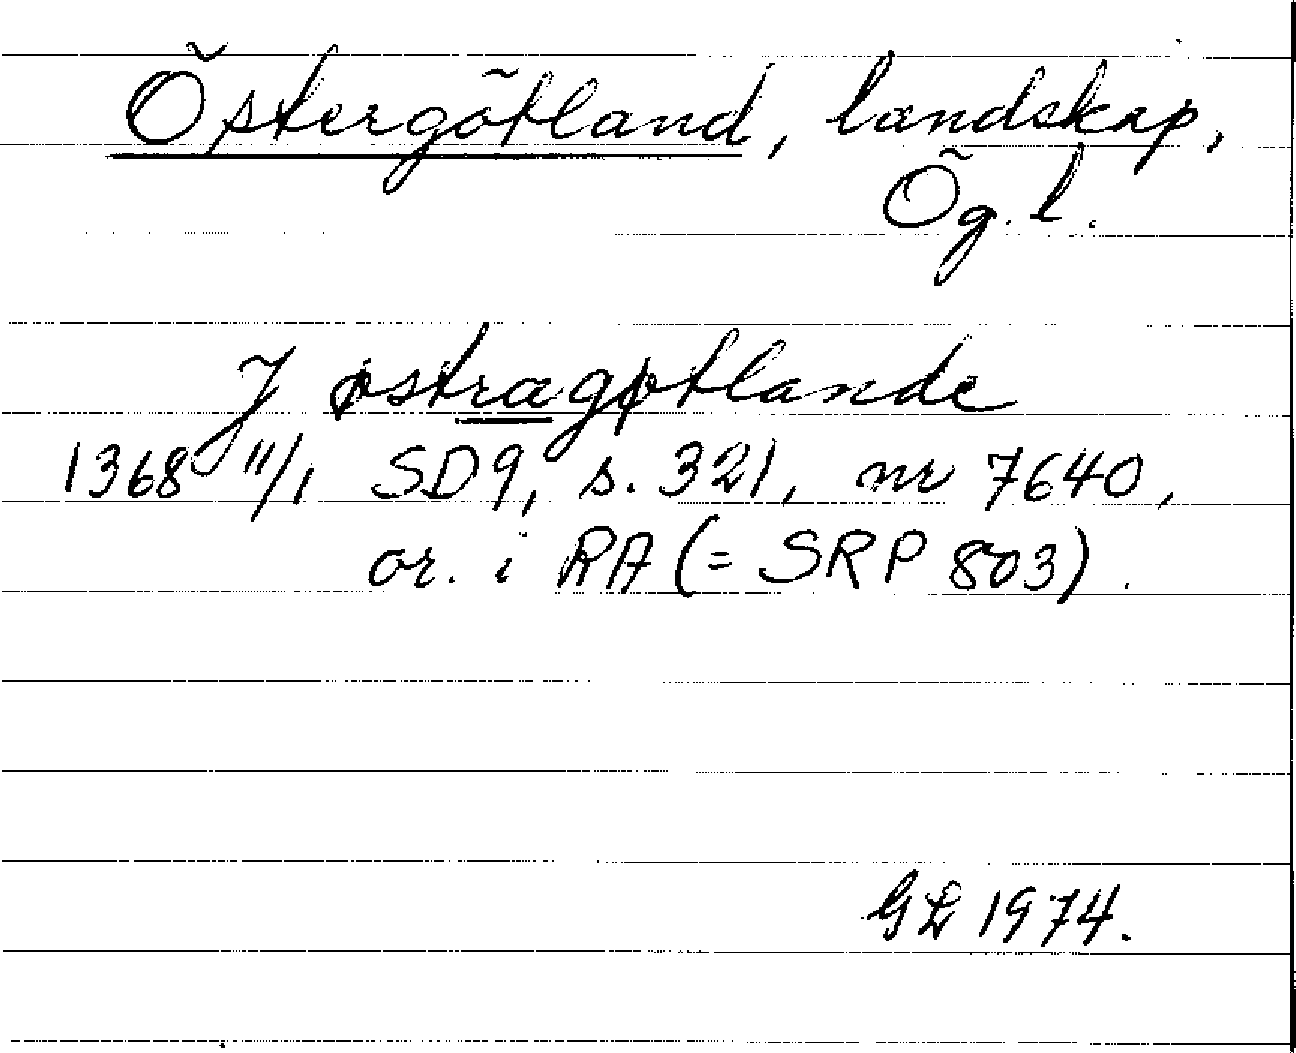 Östergötland, landskap,
Ög. l.
J østragøtlande
1368 11/1 SD9, s. 321, nr 7640,
or. i RA (= SRP 803).
GL 1974.